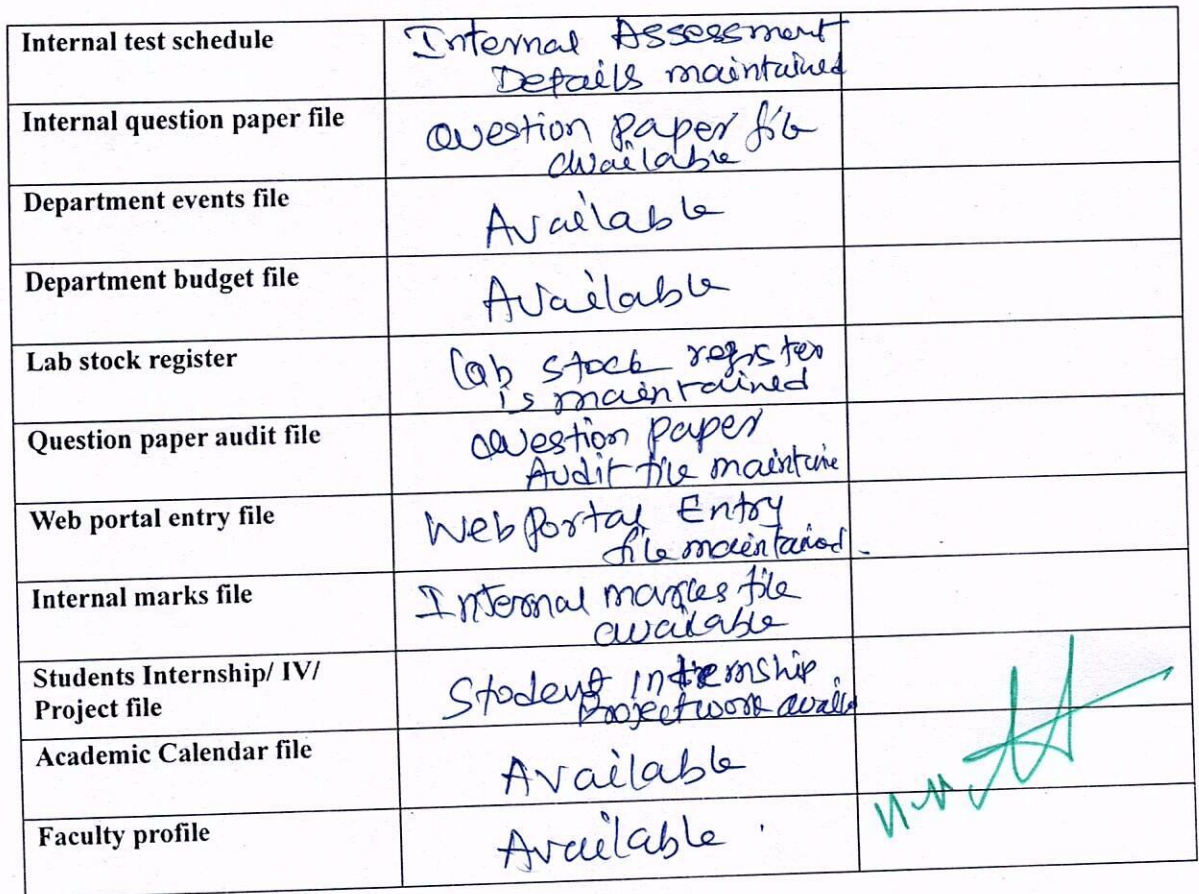 Internal test schedule
Internal Assessment
Details maintained
Internal question paper file
Question paper file
available
Department events file
Available
Department budget file
Available
Lab stock register
Lab stock register
is maintained
Question paper audit file
Question paper
Audit file maintaine
Web portal entry file
Web Portal Entry
file maintained.
Internal marks file
Internal marks file
available
Students Internship/ IV/
Project file
Student internship
Project work availa
Academic Calendar file
Available
Faculty profile
Available.